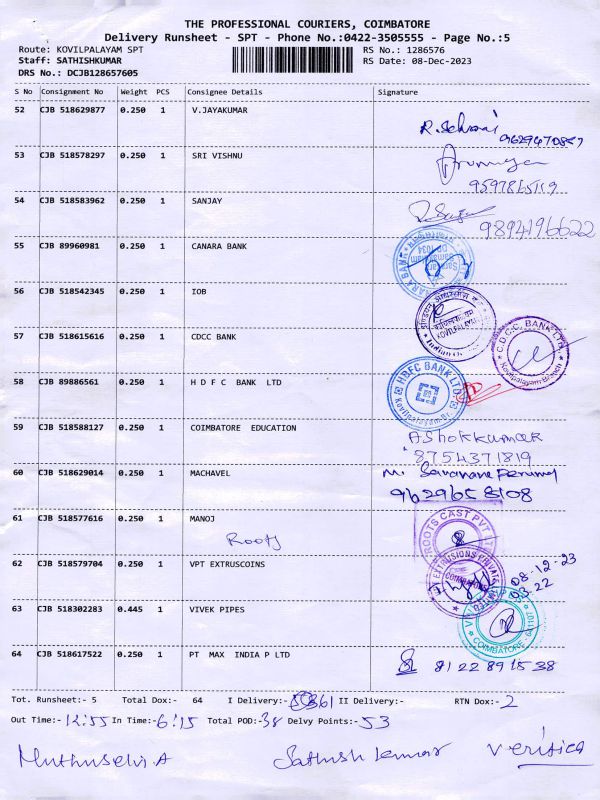 THE PROFESSIONAL COURIERS, COIMBATORE
Delivery Runsheet - SPT - Phone No.:0422-3505555 - Page No.:5
Route: KOVILPALAYAM SPT
RS No.: 1286576
Staff: SATHISHKUMAR
RS Date: 08-Dec-2023
DRS No.: DCJB128657605
S No Consignment No Weight PCS Consignee Details Signature
52 CJB 518629877 0.250 1 V.JAYAKUMAR
53 CJB 518578297 0.250 1 SRI VISHNU
54 CJB 518583962 0.250 1 SANJAY
9894196622
55 CJB 89960981 0.250 1 CANARA BANK
CANARA BANK
56 CJB 518542345 0.250 1 IOB
KOVILPALAYAM
57 CJB 518615616 0.250 1 CDCC BANK
C.D.C.C. BANK LTD
Kovilpalayam Branch
58 CJB 89886561 0.250 1 H D F C BANK LTD
HDFC BANK LTD.
Kovilpalayam Br.
59 CJB 518588127 0.250 1 COIMBATORE EDUCATION
AShokkumar
8754371819
60 CJB 518629014 0.250 1 MACHAVEL
9629658108
61 CJB 518577616 0.250 1 MANOJ
Roots
ROOTS CAST PVT LTD
62 CJB 518579704 0.250 1 VPT EXTRUSCOINS
EXTRUSIONS PRIVATE
08-12-23
63 CJB 518302283 0.445 1 VIVEK PIPES
COIMBATORE
64 CJB 518617522 0.250 1 PT MAX INDIA P LTD
8122891538
Tot. Runsheet:- 5 Total Dox:- 64 I Delivery:- 61 II Delivery:- RTN Dox:- 2
Out Time:- 12:55 In Time:- 6:15 Total POD:- 38 Delvy Points:- 53
Muthuselvi A Sathish kumar Verified